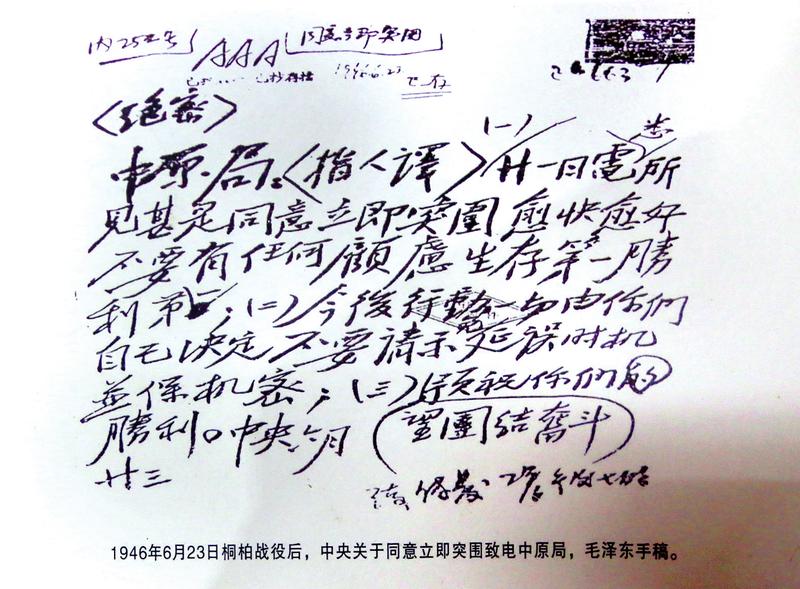 内252号 AAA 同意立即突围
1946.6.23 已存
<绝密>
中原局:<指人译>(一)廿一日電悉所
見甚是同意立即突圍愈快愈好
不要有任何顧慮生存第一勝
利第一;(二)今後行動一切由你們
自己決定不要請示免延誤时机
並保机密;(三)預祝你們的
勝利。中央六月(望團結奮斗)
廿三
1946年6月23日桐柏战役后，中央关于同意立即突围致电中原局，毛泽东手稿。